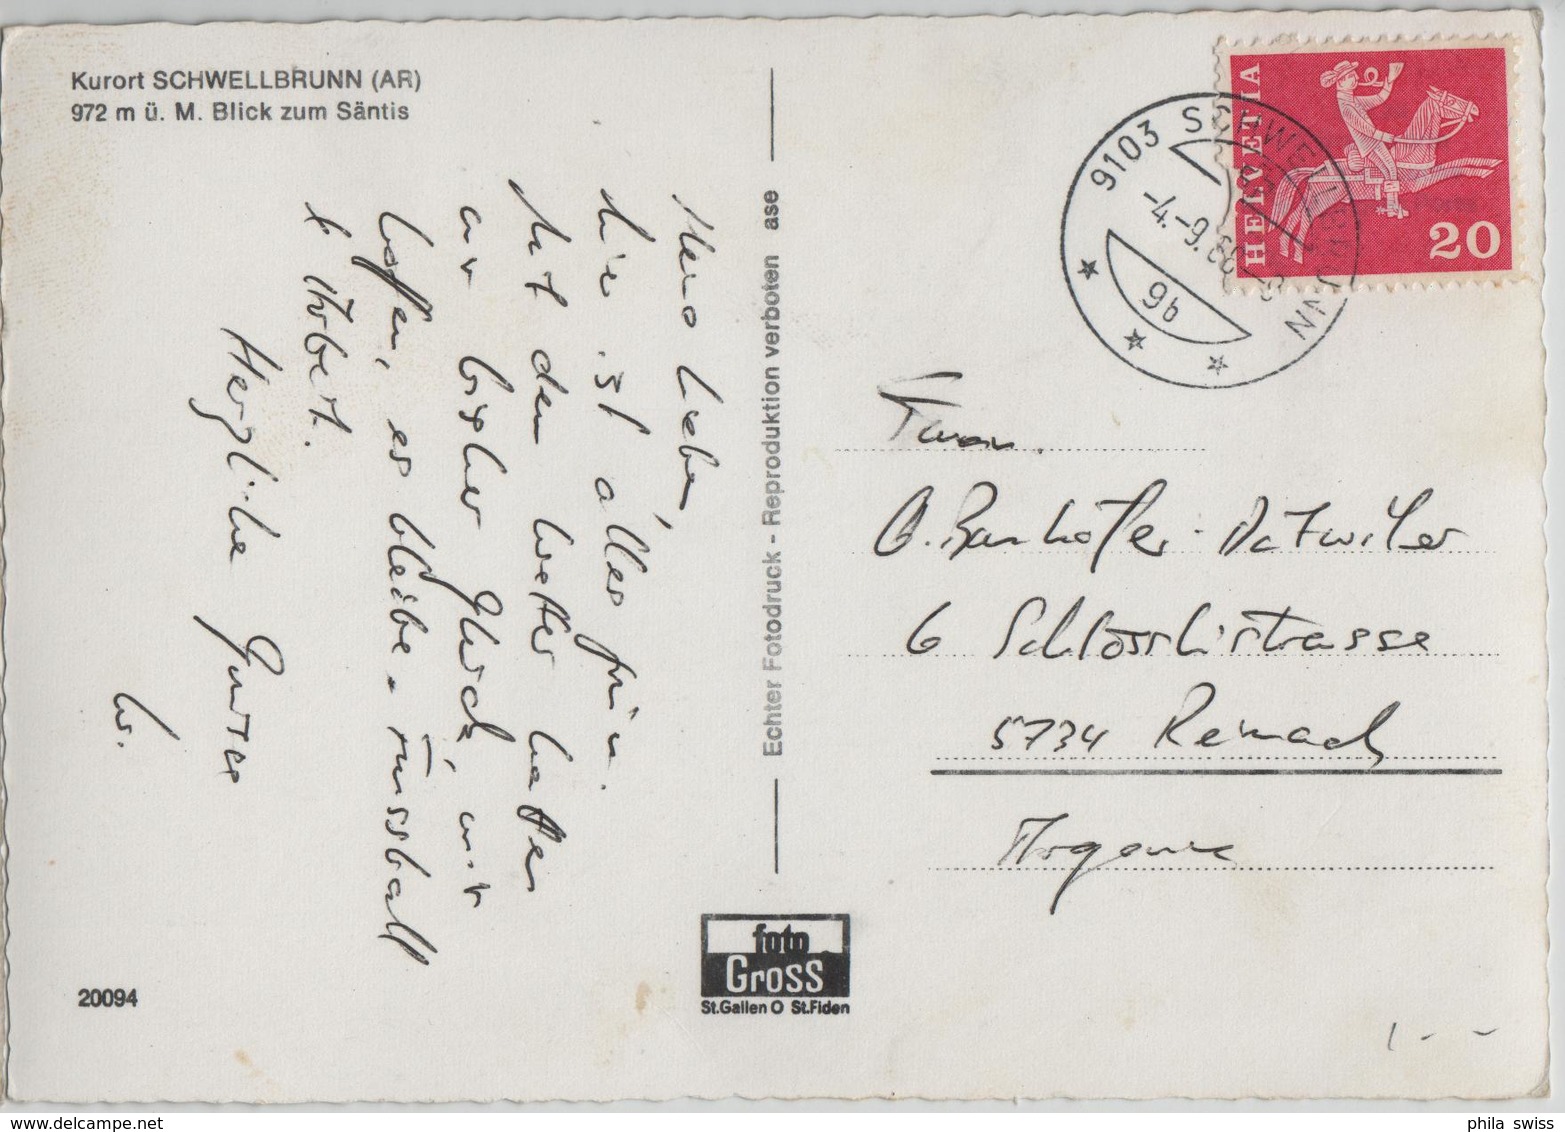 Kurort SCHWELLBRUNN (AR)
972 m ü. M. Blick zum Säntis
Meine Lieben,
hier ist alles grün.
Mit dem Wetter hatten
wir bisher Glück, wir
hoffen, es bleibe. Fussball
&
Herzliche Grüsse
W.
Echter Fotodruck - Reproduktion verboten ase
HELVETIA
20
9103 SCHWELLBRUNN
-4.-9.69
9b
Frau
O. Baumhofer-Dätwiler
6 Schlösslistrasse
5734 Reinach
Argovie
foto
Gross
St.Gallen O St.Fiden
20094
phila swiss